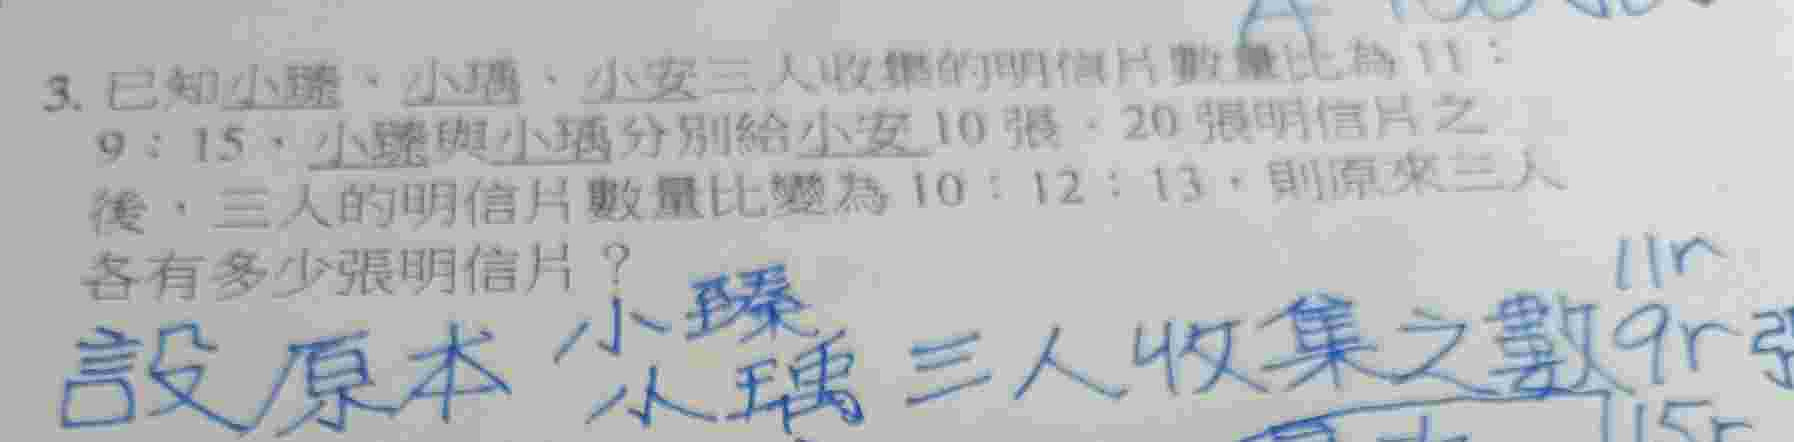 3. 已知小臻、小瑀、小安三人收集的明信片數量比為 11：
9：15，小臻與小瑀分別給小安 10 張、20 張明信片之
後，三人的明信片數量比變為 10：12：13，則原來三人
各有多少張明信片？
11r
設原本 小臻 三人收集之數 9r 張
小瑀 15r